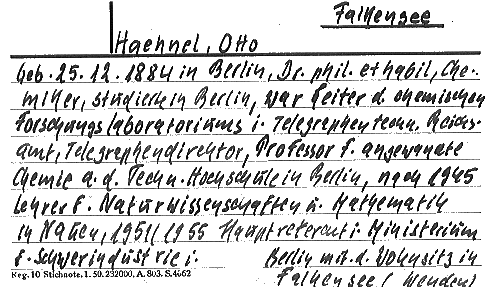 Falkensee
Haehnel, Otto
Geb. 25.12.1884 in Berlin, Dr. phil. et habil, Che-
miker, studierte in Berlin, war Leiter d. chemischen
Forschungslaboratoriums i. Telegraphentechn. Reichs-
amt, Telegraphendirektor, Professor f. angewandte
Chemie a. d. Techn. Hochschule in Berlin, nach 1945
Lehrer f. Naturwissenschaften u. Mathematik
in Nauen, 1951/1955 Hauptreferent i. Ministerium
f. Schwerindustrie i. Berlin mit d. Wohnsitz in
Reg. 10 Stichnote. 1. 50. 232000, A. 803. S. 4662
Falkensee (